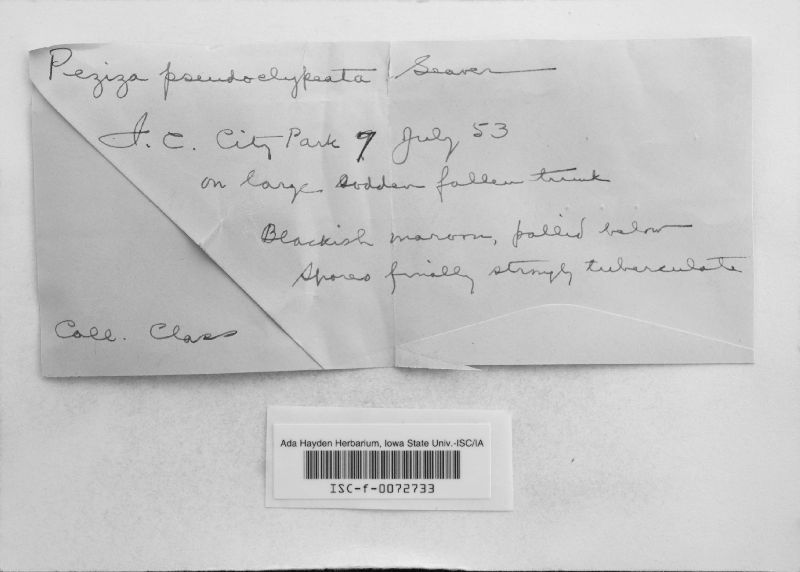 Peziza pseudoclypeata Seaver
I. C. City Park 9 July 53
on large sodden fallen trunk
Blackish maroon, pallid below
Spores finally strongly tuberculate
Coll. Class
Ada Hayden Herbarium, Iowa State Univ.-ISC/IA
ISC-f-0072733